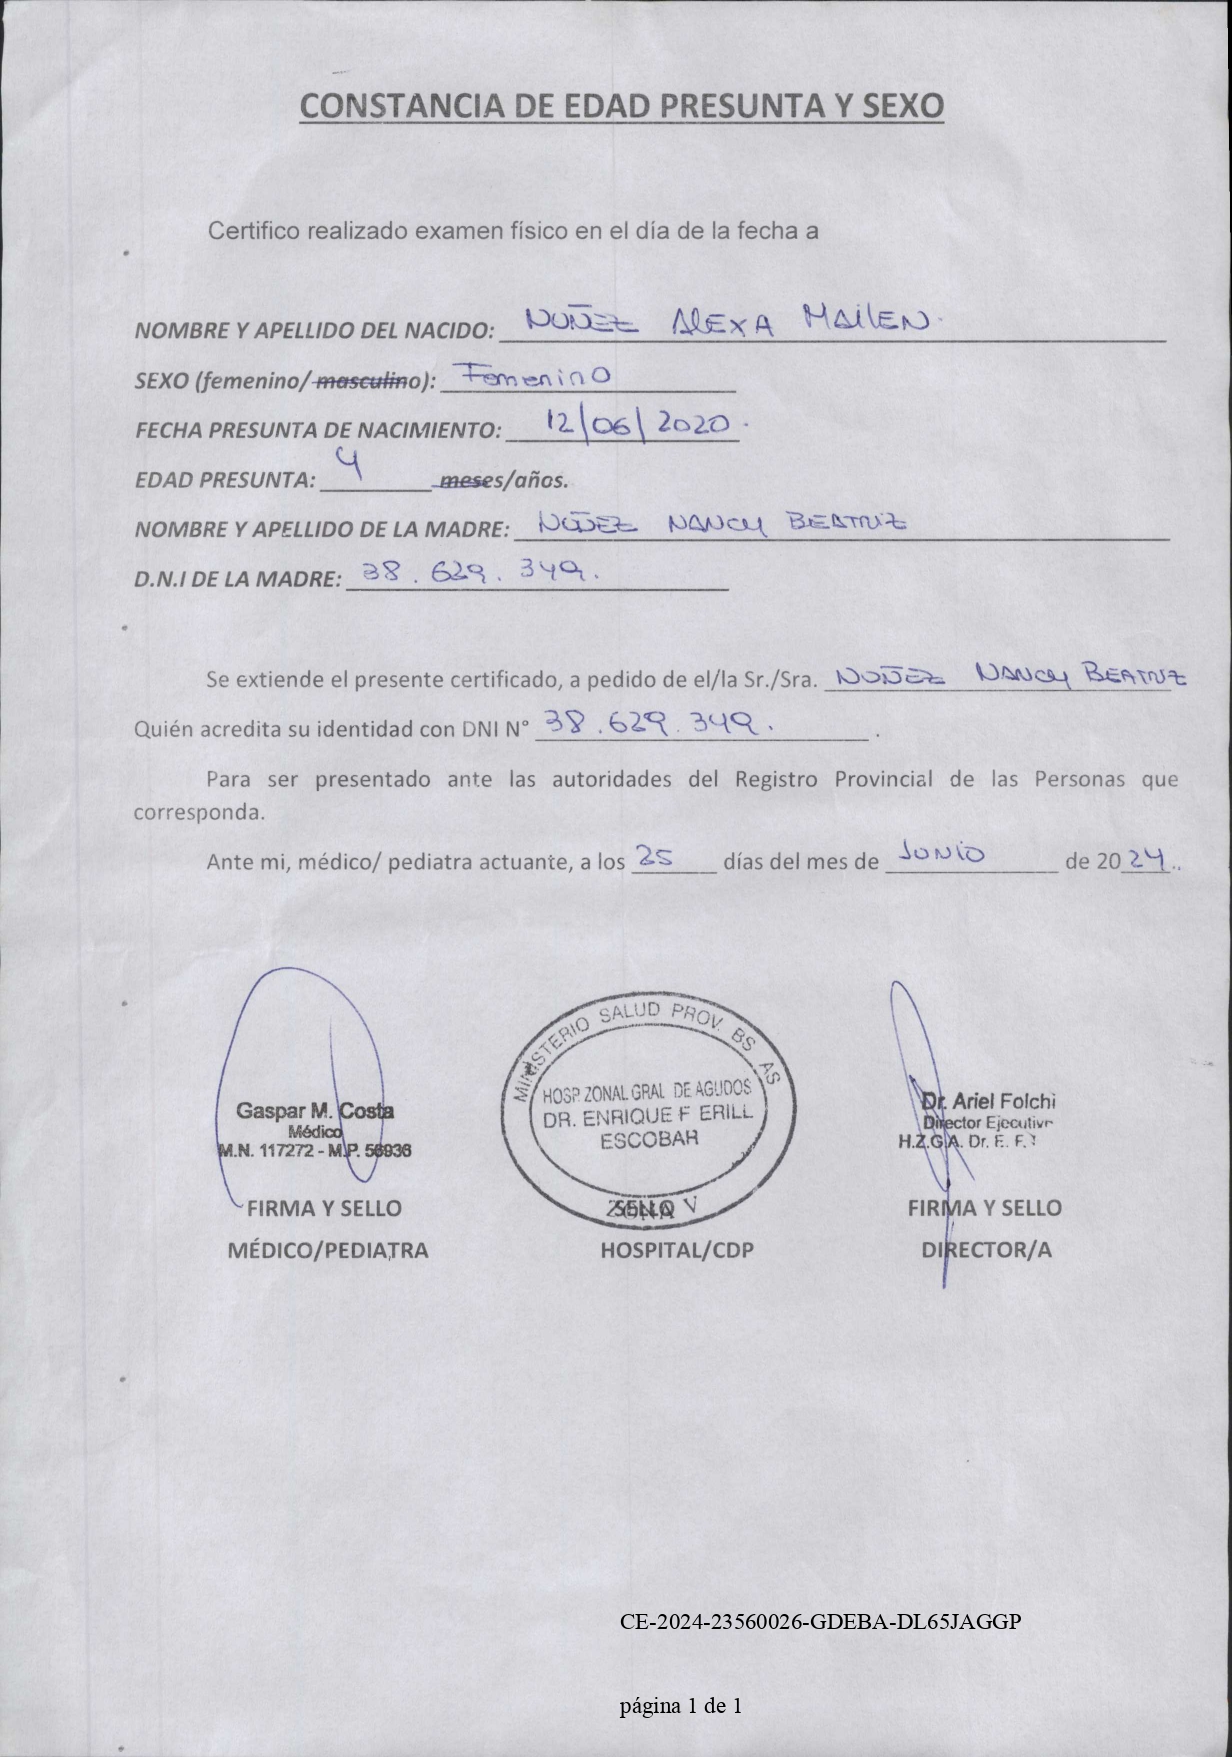 CONSTANCIA DE EDAD PRESUNTA Y SEXO
Certifico realizado examen físico en el día de la fecha a
NOMBRE Y APELLIDO DEL NACIDO: NUÑEZ ALEXA MAILEN.
SEXO (femenino/masculino): Femenino
FECHA PRESUNTA DE NACIMIENTO: 12/06/2020.
EDAD PRESUNTA: 4 meses/años.
NOMBRE Y APELLIDO DE LA MADRE: NUÑEZ NANCY BEATRIZ
D.N.I DE LA MADRE: 38.629.349.
Se extiende el presente certificado, a pedido de el/la Sr./Sra. NUÑEZ NANCY BEATRIZ
Quién acredita su identidad con DNI N° 38.629.349. .
Para ser presentado ante las autoridades del Registro Provincial de las Personas que
corresponda.
Ante mi, médico/ pediatra actuante, a los 25 días del mes de JUNIO de 2024..
MINISTERIO SALUD PROV. BS AS
HOSP. ZONAL GRAL DE AGUDOS
DR. ENRIQUE F ERILL
ESCOBAR
ZONA V
Gaspar M. Costa
Médico
M.N. 117272 - M.P. 56936
Dr. Ariel Folchi
Director Ejecutivo
H.Z.G.A. Dr. E. F.
FIRMA Y SELLO SELLO FIRMA Y SELLO
MÉDICO/PEDIATRA HOSPITAL/CDP DIRECTOR/A
CE-2024-23560026-GDEBA-DL65JAGGP
página 1 de 1